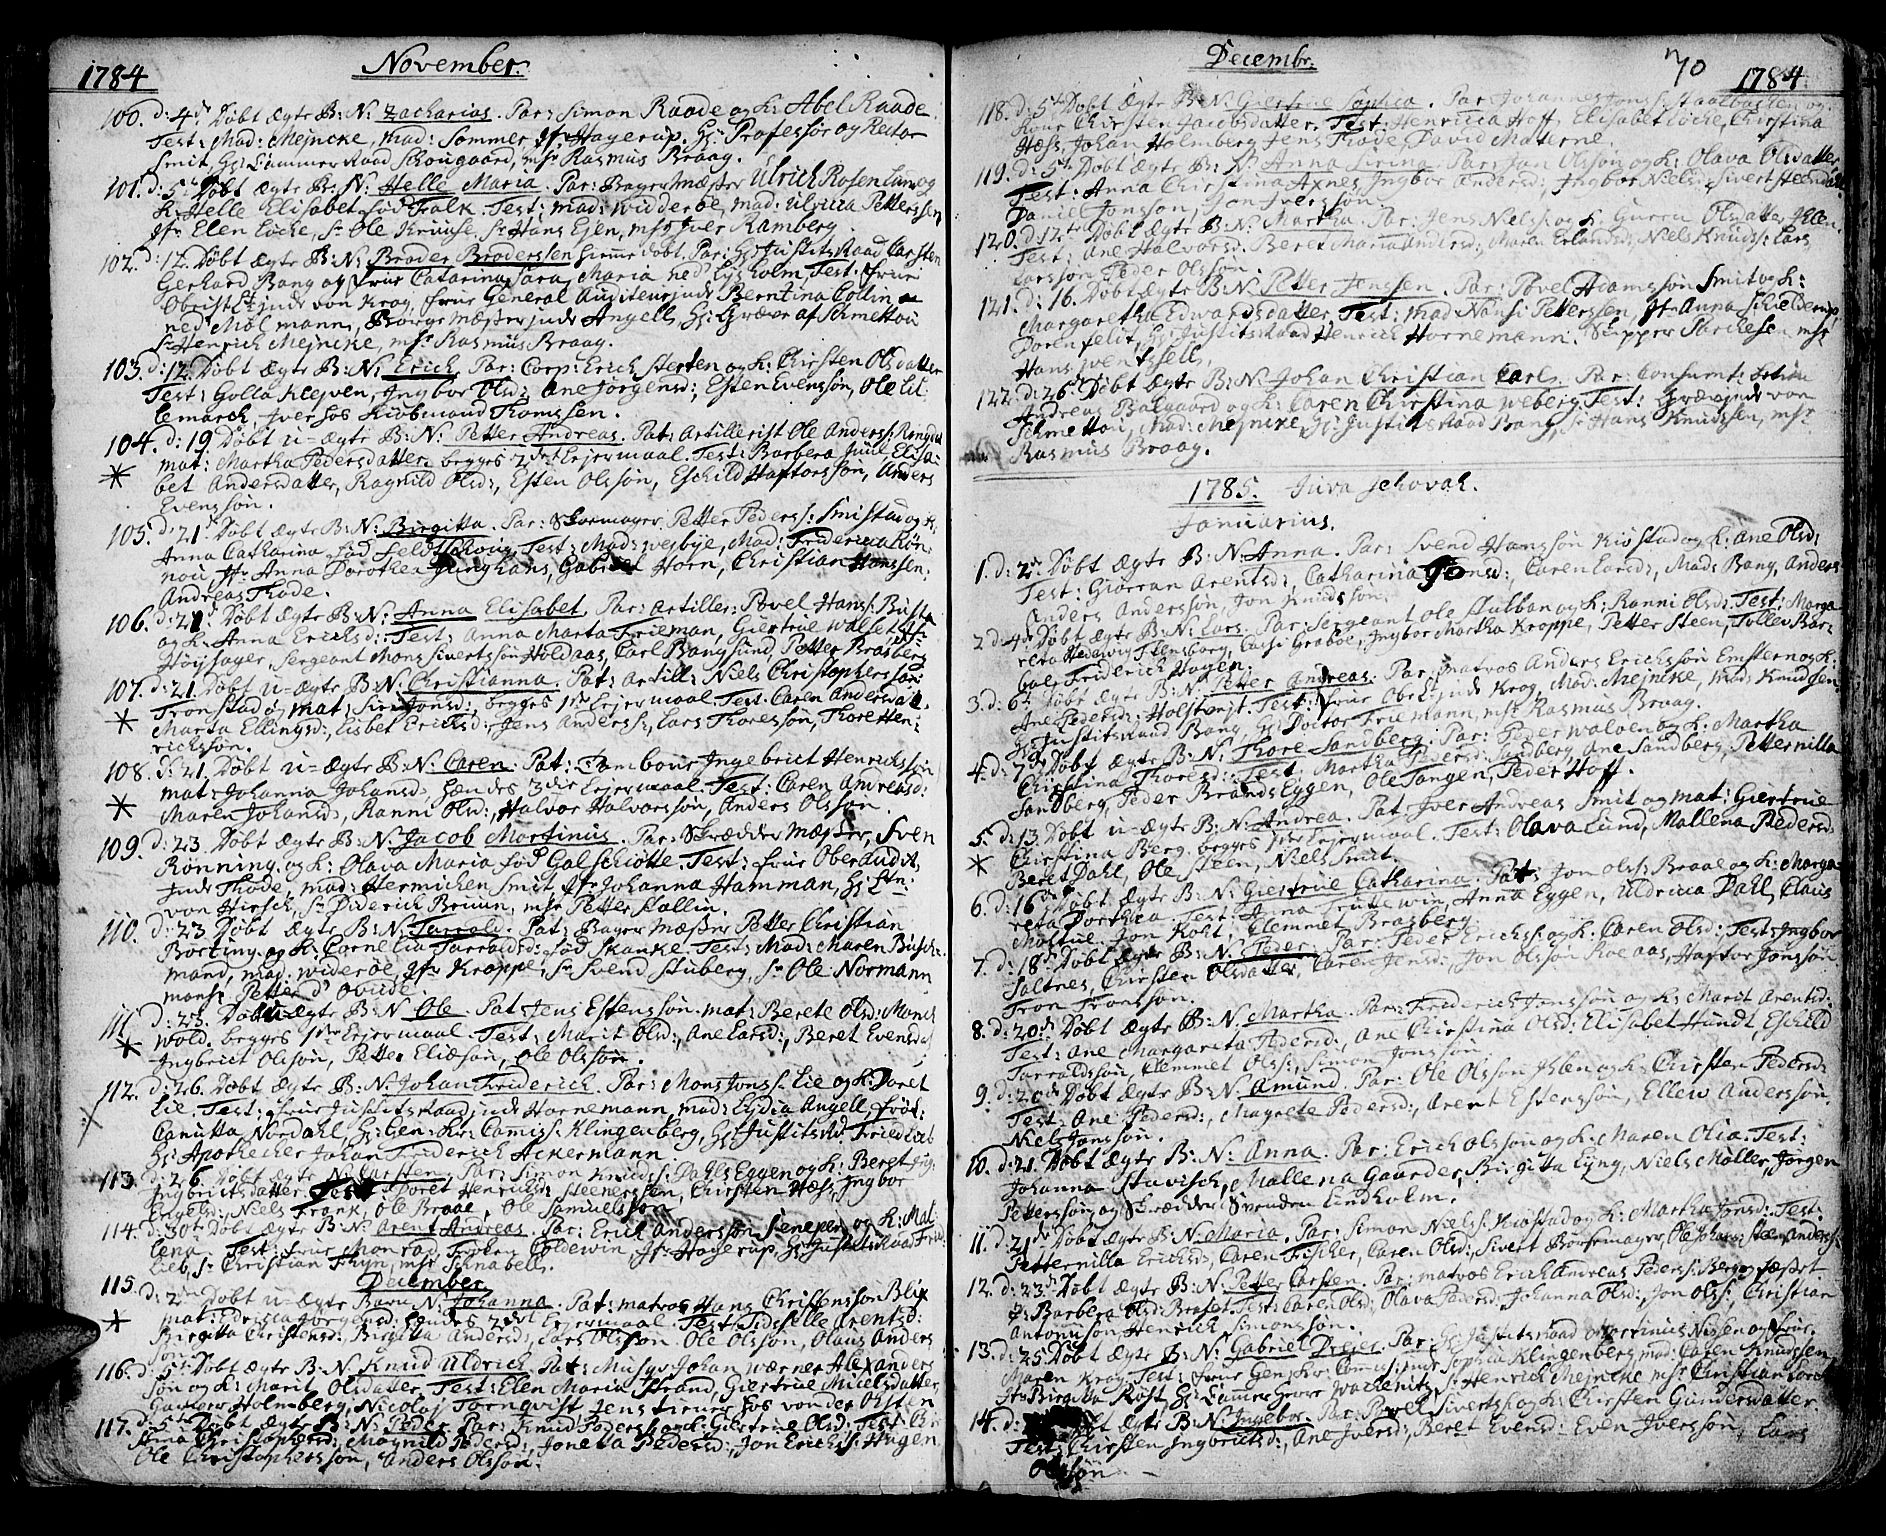 1784
November.
100. d: 4de Døbt Ægte B: N: Zacharias. Par: Simon Raade og H: Abel Raade
Test: Mad: Mejncke, Mad: Sommer, Jfr Hagerup, Hr: Professor og Rector
Smit, Hr: Cammer Raad Schougaard, msr Rasmus Braag.
101. d: 5te Døbt Ægte B: N: Helle Maria. Par: Bager Mæster Ulrich Rosenlam og
H: Helle Elisabet fød Falk. Test: Mad: Widderøe, Mad: Ulrica Petterssen
Jfr Elen Løcke, Sr Ole Kruuse, Sr Hans Ejen, msr Iver Ramberg.
102. d: 12. Døbt Ægte B: N: Broder Brodersen hiemedøbt. Par: Hr: Justits Raad Carsten
Gerhard Bang og frue Catarina Sara Maria ned Lysholm. Test: frue
Obristlt:inde von Krog, frue General Auditeurinde Berntina Collin
ned Møllmann, Borgemæsterinde Angell, Hr: Græve af Schmettou
Sr Henrich Mejncke, msr Rasmus Braag.
103. d: 12. Døbt Ægte B: N: Erich. Par: Corp: Erich Sterten og H: Chirsten Olsdatter
Test: Golla Klejven, Ingbor Olsd:, Ane Jørgensd:, Esten Evensøn, Ole Lil-
lemarch, Iver hos Kiøbmand Thomssen.
104. d: 19. Døbt u-Ægte B: N: Petter Andreas. Pat: Artillerist Ole Anderss: Ringdal
mat: Martha Pedersdatter, begges 2det Lejermaal. Test: Barbera Juul, Elisa-
bet Andersdatter, Ragnild Olsd:, Esten Olssøn, Eschild Haftorssøn, Anders
Evenssøn.
105. d: 21. Døbt Ægte B: N: Birgitta. Par: Skomager Petter Peders: Smistad og H:
Anna Catharina fød Feldtschouv. Test: Mad: Wejbye, Mad: Friderica Røn-
nou, Jfr Anna Dorothea Junghans, Gabriel Horn, Christian Hanssen,
Andreas Thode.
106. d: 21. Døbt Ægte B: N: Anna Elisabet. Par: Artiller: Povel Hanss: Busta
og H: Anna Ericksd: Test: Anna Marta Frieman, Giertrue Walset, Jfr
Høysager, Sergeant Mons Sivertssøn Holdaas, Carl Bangsund, Petter Brasberg
107. d: 21. Døbt u-Ægte B: N: Christianna. Pat: Artill: Niels Christopherssøn
Tronstad, mat: Siri Jonsd:, begges 1ste Lejermaal. Test: Caren Andersdat.
Marta Ellingsd:, Lisbet Ericksd:, Jens Anderss:, Lars Thoressøn, Thore Hen-
richssøn.
108. d: 21. Døbt u-Ægte B: N: Caren. Pat: Tambour Ingebrict Henrichssøn
mat: Johanna Johansd:, hendes 3die Lejermaal. Test: Caren Andreasd:
Maren Johansd:, Ranni Olsd:, Halvor Halvorssøn, Anders Olssøn.
109. d: 23. Døbt Ægte B: N: Jacob Martinus. Par: Skrædder Mæster, Sven
Rønning og H: Olava Maria fød Galschiøtte. Test: frue Oberaudit,
inde Thode, Mad: Hermichen Smit, Jfr Johanna Hamman, Hr: Ltn:
von Hirsch, Sr Diderich Bruun, msr Petter Stallin.
110. d: 23 Døbt Ægte B: N: Tarrold. Pat: Bager Mæster Petter Christian
Borting og H: Cornelia Tarraldsd: fød Skanke. Test: Mad: Maren Busch-
mand, Mad: Widerøe, Jfr Kroppe, Sr Svend Stuberg, Sr Ole Normann
mons: Petter d'Obuide.
111. d: 23. Døbt u-Ægte B: N. Ole. Pat: Jens Estenssøn. mat: Berete Olsd: Munch
wold. begges 1ste Lejermaal. Test: Marit Olsd:, Ane Larsd:, Beret Evensdr
Ingbrict Olssøn, Petter Eliæsøn, Ole Olssøn.
112. d: 26. Døbt Ægte B: N: Johan Friderich. Par: Mons Jonss: Lie og H: Doret
Lie. Test: frue Justits Raadinde Hornemann, Mad: Lydia Angell, frøk:
Canutta Nordahl, Hr: Gen: Kr: Camiss: Klingenberg, Hr: Justits Rd: Friedlieb
Hr: Apothecker Johan Friderich Ackermann.
113. d: 26. Døbt Ægte N: Carsten. Par: Simon Knudss: Dahls Eggen og H: Beret
Ingbrictsdatter. Test: Doret Henrichsd: Steenerssen, Chirsten Hæs, Ingbor
Engelsd:, Niels Frank, Ole Braae, Ole Samuelssøn.
114. d: 30te Døbt Ægte B: N: Arent Andreas. Par: Erich Anderssøn Seneper og H: Mal-
lena. Test: frue Monrad, Frøken Coldewin, Jfr Hagerup, Hr: Justits Raad Fried-
lieb, Sr Christian Thyn, msr Schnabell.
December.
115. d: 2den Døbt u-Ægte Barn N: Johanna. Pat: matros Hans Christenssøn Blix
mat: Jørgensd: hendes 2det Lejermaal. Test: Sidselle Arentsd:
Birgitta Christensd:, Birgitta Andersd:, Lars Olssøn, Ole Olssøn, Olaus Anders
søn.
116. d: 5te Døbt Ægte B: N. Knud Uldrich. Pat: Musqv: Johan Wærner Alexanders
søn og H: Marit Olsdatter. Test: Elen Maria Strand, Giertrue Micelsdatter,
Holmberg, Nicolaj Tørnqvist, Jens tiener hos von der Osten
117. d: 5te Døbt Ægte B: N: Peder. Par: Knud Pederss: og H: Giertrue Olsd: Test: Bir
Stina Christophersd:, Magnild Pedersd:, Joneta Pedersd:, Jon Erichss: Hugen,
Ole Christopherssøn, Anders Olssøn.
Decembr.
70
1784
118. d: 5te Døbt Ægte B: N: Giertrue Sophia. Par: Johannes Jonss: Staalbasten og
Kone Chirsten Jacobsdatter. Test: Henricca Hoff, Elisabet Løcke, Christina
Hæss, Johan Holmberg, Jens Thode, David Materne.
119. d: 5te Døbt Ægte B: N: Anna Sirina. Par: Jan Olssøn og H: Olava Olsdatter
Test: Anna Christina Axnes, Ingbor Andersd:, Ingbor Nielsd:, Sivert Steendahl
Daniel Jonssøn, Jon Iverssøn.
120. d: 12te Døbt Ægte B: N: Martha. Par: Jens Nielss: og H: Gurru Olsdatter
Test: Ane Halvorsd:, Beret Maria Andersd:, Maren Erlandsd:, Niels Knudss:, Lars
Larssøn, Peder Olssøn.
121. d: 16. Døbt Ægte B: N: Petter Jenssen. Par: Povel Adamssøn Smit og H:
Margaretha Edwardsdatter. Test: Mad: Nansi Petterssen, Jfr Anna Schielderup,
Dorenfelt, Hr: Justits Raad Henrich Hornemann, Skipper Sørckesen, msr
Hans Wentssell.
122. d: 26de Døbt Ægte B: N: Johan Christian Carl. Par: Consumt:
Andreas Balgaard og H: Caren Christina Weberg. Test: Grævinde von
Schmettou, Mad: Mejncke, Hr: Justits Raad Bang, Sr Hans Knudssen, msr
Rasmus Braag.
1785. Juva Jehovah.
Januarius.
1. d: 2den Døbt Ægte B: N: Anna. Par: Svend Hanssøn Kiøstad og H: Ane Olsd:
Test: Giørran Arentsd:, Catharina Jonsd:, Caren Larsd:, Mad: Bang, Anders
Anders Anderssøn, Jon Knudssøn.
2 d: 4de Døbt Ægte B: N: Lars. Par: Sergeant Ole Stubban og H: Ranni Olsd: Test: Marga
reta Hedewig Stensborg, Cassi Graboe, Ingbor Martha Kroppe, Petter Steen, Tollev Bar-
boe, Friderich Hagen.
3. d: 6te Døbt Ægte B: N: Petter Andreas. Par: matros Anders Erichssøn Emstern og H:
Ane Pedersd: Holstvejt. Test: frue Oberstinde Krog, Mad: Mejncke, Mad: Knudssen,
Hr: Justits Raad Bang, Hr: Doctor Friemann, msr Rasmus Braag.
4. d: 7de Døbt Ægte B: N: Thore Sandberg. Par: Peder Waloen og H: Martha
Christina Thoresd: Test: Martha Pedersd: Sandberg, Ane Sandberg, Petternilla
Sandberg, Peder Brands Eggen, Ole Tangen, Peder Hoff.
5. d: 13. Døbt u-Ægte B: N: Andrea. Pat: Iver Andreas Smit og mat: Giertrue
Christina Berg. begges 1ste Lejermaal. Test: Olava Lund, Mallena Pedersd:
Beret Dahl, Ole Steen, Niels Smit.
6. d: 16de Døbt Ægte B: N: Giertrue Catharina. Pat: Jon Olss: Braae og H: Marga-
reta Dorthea. Test: Anna Trulewin, Anna Eggen, Uldrica Dahl, Claus
Mostue, Jon Koht, Clemmet Brasberg.
7. d: 18de Døbt Ægte B: N: Peder. Par: Peder Erichss: og H: Caren Olsd: Test: Ingbor
Saltnes, Chirsten Olsdatter, Caren Jensd:, Jon Olssøn Roeaas, Haftor Jonssøn
Tron Tronssøn.
8. d: 20de Døbt Ægte B: N: Martha. Par: Friderich Jenssøn og H: Marit Arentsd.
Test: Ane Margareta Pedersd:, Ane Christina Olsd: Elisabet Hundt, Eschild
Tarraldssøn, Clemmet Olss:, Simon Jonssøn.
9. d: 20de Døbt Ægte B: N: Amund. Par: Ole Olssøn Islen og H: Chirsten Pedersd:
Test: Ane Pedersd:, Magrete Pedersd:, Arent Estenssøn, Ellew Anderssøn,
Niels Jonssøn.
10. d: 21. Døbt Ægte B: N: Anna. Par: Erich Olssøn og H: Maren Olia. Test:
Johanna Stavisch, Mallena Gaarder, Birgitta Lyng, Niels Møller, Jørgen
Petterssøn og Skrædder Svenden Lindholm.
11. d: 21de Døbt Ægte B: N: Maria. Par: Simon Nielss: Kiøstad og H: Martha Jonsd: Test:
Petternilla Erichsd:, Caren Fischer, Caren Olsd:, Sivert Børsemager, Ole Johan Steen, Anders:
12. d: 23de Døbt Ægte B: N: Petter Carsten. Par: matros Erich Andreas Pederss: Berg og fæstet
P: Barbera Olsd: Braset. Test: Caren Olsd:, Olava Pedersd:, Johanna Olsd:, Jon Olss:, Christian
Antonissøn, Henrich Simonssøn.
13. d: 25 Døbt Ægte B: N: Gabriel Drejer. Par: Hr: Justits Raad Mortinus Nissen og frue
Maren Krog. Test: frue Gen: Kr: Comiss:inde Sophia Klingenberg, Mad: Caren Knudssen
Jfr Birgitta Rost, Hr: Cammer Herre Wackenitz, Sr Henrich Mejncke, msr Christian Lorck
14. d: Døbt Ægte B: N: Ingebor. Par: Povel Sivertss: og H: Chirsten Gundersdatter.
Test: Chirsten Ingbrictsd:, Ane Iversd:, Beret Evensd:, Even Iverssøn, Lars
Olssøn.